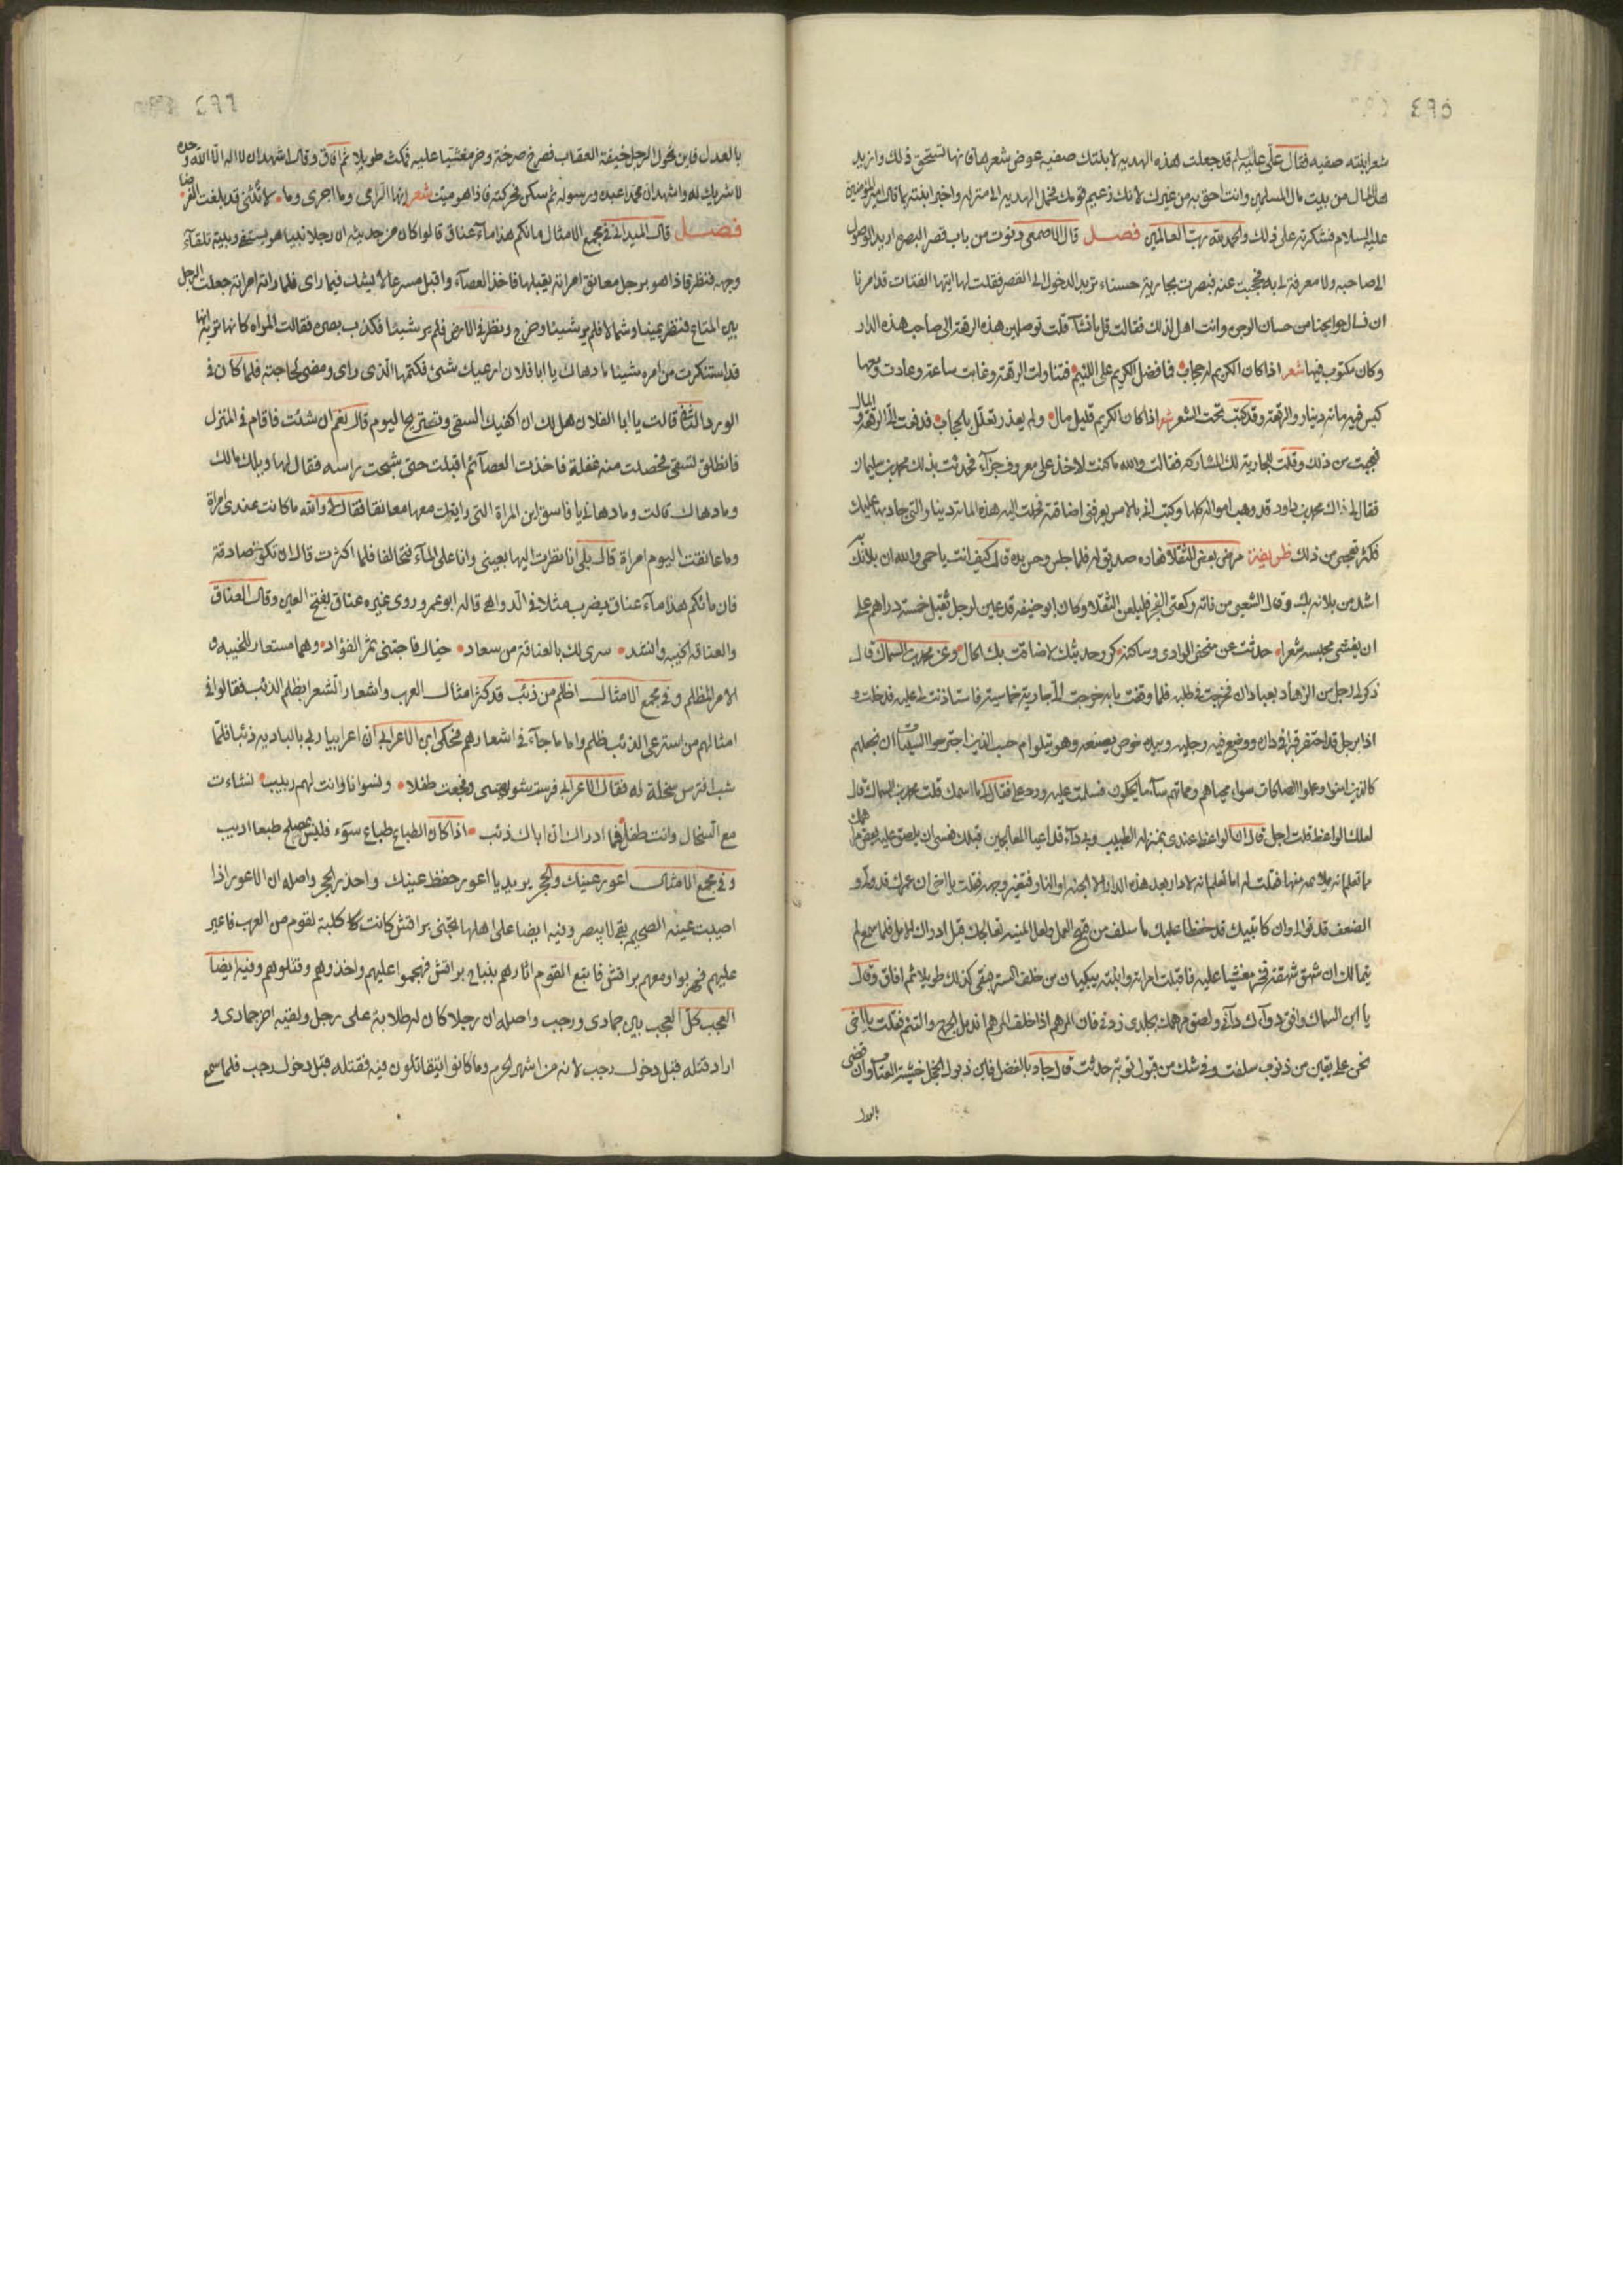 ٤٩٥
شعر ابنته صفيه فقال علي عليه السلم قد جعلت هذه الهديه لابنتك صفيه عوض شعرها فانها تستحق ذلك وازيد
هذا المال من بيت مال المسلمين وانت احق به من غيرك لانك زعيم قومك فحمل الهديه الى منزله واخبر ابنته بما قال امير المؤمنين
عليه السلام فشكرته على ذلك والحمد لله رب العالمين فصل قال الاصمعي دنوت من باب قصر البصره اريد الوصول
الى صاحبه ولا معرفة لي به فحجبت عنه فبصرت بجارية حسناء تريد الدخول الى القصر فقلت لها ايتها الفتاة قد امرنا
ان نسال حوايجنا من حسان الوجوه وانت اهل لذلك فقالت قل ما تشآء قلت توصلين هذه الرقعة الى صاحب هذه الدار
وكان مكتوب فيها شعر اذا كان الكريم له حجاب فما فضل الكريم على اللئيم فتناولت الرقعة وغابت ساعة وعادت ومعها
كيس فيه مائة دينار والرقعة وقد كتب تحت الشعر شعر اذا كان الكريم قليل مال ولم يعذر تعلل بالحجاب فدفعت الي الرقعة والمال
فعجبت من ذلك وقلت للجارية لك المشاركه فقالت والله ما كنت لاخذ على معروف جزآء فحدثت بذلك محمد بن سليمان
فقال لي ذاك محمد بن داود قد وهب امواله كلها وكتب الي بالامس يعرفني اضاقته فحملت اليه هذه المائة دينار والتي جاد بها عليك
فكثر تعجبي من ذلك ظريفة مرض بعض الثقلا فعاده صديق له فلما جلس وحرس به قال كيف انت يا حمى والله ان بلائك
اشد من بلائه بك وقال الشعبي من فاته ركعتي الفجر فليلعن الثقلا وكان ابو حنيفه قد عين لرجل ثقيل خمسة دراهم على
ان يغشى مجلسه شعرا حدثت عن منحنى الوادي وساكنه كرر حديثك لا ضاقت بك الحال وعن محمد بن السماك قال
ذكر لي رجل من الزهاد بعبادان فخرجت في طلبه فلما وقفت ببابه خرجت الي جارية خماسية فاستاذنت لي عليه فدخلت و
اذا برجل قد احتفر قبرا في داره ووضع فيه رجليه وبيده خوص يصنعه وهو يتلو ام حسب الذين اجترحوا السيئات ان نجعلهم
كالذين امنوا وعملوا الصالحات سواء محياهم ومماتهم سآء ما يحكمون فسلمت عليه ورد علي فقال لي ما اسمك قلت محمد بن السماك قال
لعلك الواعظ قلت اجل قال ان الواعظ عندي بمنزلة الطبيب وبي دآء قد اعيا المعالجين قبلك فعسى ان يلصق عليه بعض مراهمك
ما تعلم انه يلايمه منها فقلت له اما تعلم انه لا دار بعد هذه الدار الا الجنه او النار فتغير وجهه فقلت يا اخي ان عمرك قد ولى و
الضعف قد توالى وان كاتبيك قد حفظا عليك ما سلف من قبح العمل ولعل المنيه تعالجك قبل ادراك الامل فلما سمع لم
يتمالك ان شهق شهقة فخر مغشيا عليه فاقبلت امراته وابنته يبكيان من خلف الستر فبقي كذلك طويلا ثم افاق وقال
يا ابن السماك وافق دوآءك دآئي ولصق مرهمك بجلدي زدني فان المرهم اذا خلف المرهم اندمل الجرح والتئم فقلت يا اخي
نحن على يقين من ذنوب سلفت وفي شك من قبول توبة حدثت قال جاد بالفضل فاين ذبول النحل خشية العتاب وان قضى
بالعدل
٤٩٦
بالعدل فاين نحول الرجل خيفة العقاب فصرخ صرخة وخر مغشيا عليه فمكث طويلا ثم افاق وقال اشهد ان لا اله الا الله وحده
لا شريك له واشهد ان محمدا عبده ورسوله ثم سكن فحركته فاذا هو ميت شعر ايها الرازي وما اجرى وما لا تلمني قد بلغت الغرضا
فصل قال الميداني في مجمع الامثال ماتكم هذا مآء عناق قالوا كان من حديثه ان رجلا بينما هو يستقي وبيته تلقآء
وجهه فنظر فاذا هو برجل معانق امراته يقبلها فاخذ العصآء واقبل مسرعا لا يشك فيما راى فلما راته امراته جعلت الرجل
بين المتاع فنظر يمينا وشمالا فلم ير شيئا وخرج ونظر في الارض فلم ير شيئا فكذب بصره فقالت المراه كانها تريه انها
قد استنكرت من امره شيئا ما دهاك يا ابا فلان ارعبك شئ فكتمها الذي راى ومضى لحاجته فلما كان في
الورد الثاني قالت يا ابا الفلان هل لك ان اكفيك السقي وتستريح اليوم قال نعم ان شئت فاقام في المنزل
فانطلق لتسقي فحصلت منه غفلة فاخذت العصآ ثم اقبلت حتى شجت راسه فقال لها ويلك مالك
وما دهاك قالت وما دهاني يا فاسق اين المراة التي رايتك معها معانقا فقال لا والله ما كانت عندي امراة
وما عانقت اليوم امراة قال بلى انا نظرت اليها بعيني وانا على المآء فتحالفا فلما اكثرت قال ان تكوني صادقة
فان مائكم هذا مآء عناق يضرب مثلا في الدواهي قاله ابو عمر وروى غيره عناق بفتح العين وقال العناق
والعناقه الخيبه وانشد سرى لك بالعناقة من سعاد خيال فاجتنى ثمر الفؤاد وهما مستعار للخيبه و
الامر المظلم وفي مجمع الامثال اظلم من ذئب قد كثر امثال العرب واشعار الشعرا بظلم الذئب فقالوا في
امثالهم من استرعى الذئب ظلم واما ما جآء في اشعارهم فحكى ابن الاعرابي ان اعرابيا ربى بالباديه ذئبا فلما
شب افترس سخلة له فقال الاعرابي فرست شويهتي وفجعت طفلا ونسوانا وانت لهم ربيب نشاءت
مع السخال وانت طفل فما ادراك ان اباك ذئب اذا كان الطباع طباع سوء فليس بمصلح طبعا اديب
وفي مجمع الامثال اعور عينك والحجر يريد يا اعور حفظ عينك واحذر الحجر واصله ان الاعور اذا
اصيبت عينه الصحيحه بقي لا يبصر وفيه ايضا على اهلها تجنى براقش كانت كلبة لقوم من العرب فاغير
عليهم فهربوا ومعهم براقش فاتبع القوم اثارهم بنباح براقش فهجموا عليهم واخذوهم وقتلوهم وفيه ايضا
العجب كل العجب بين جمادى ورجب واصله ان رجلا كان له طلابة على رجل ولقيه اخر جمادى و
اراد قتله قبل دخول رجب لانه من اشهر الحرم وما كانوا يتقاتلون فيه فقتله قبل دخول رجب فلما سمع